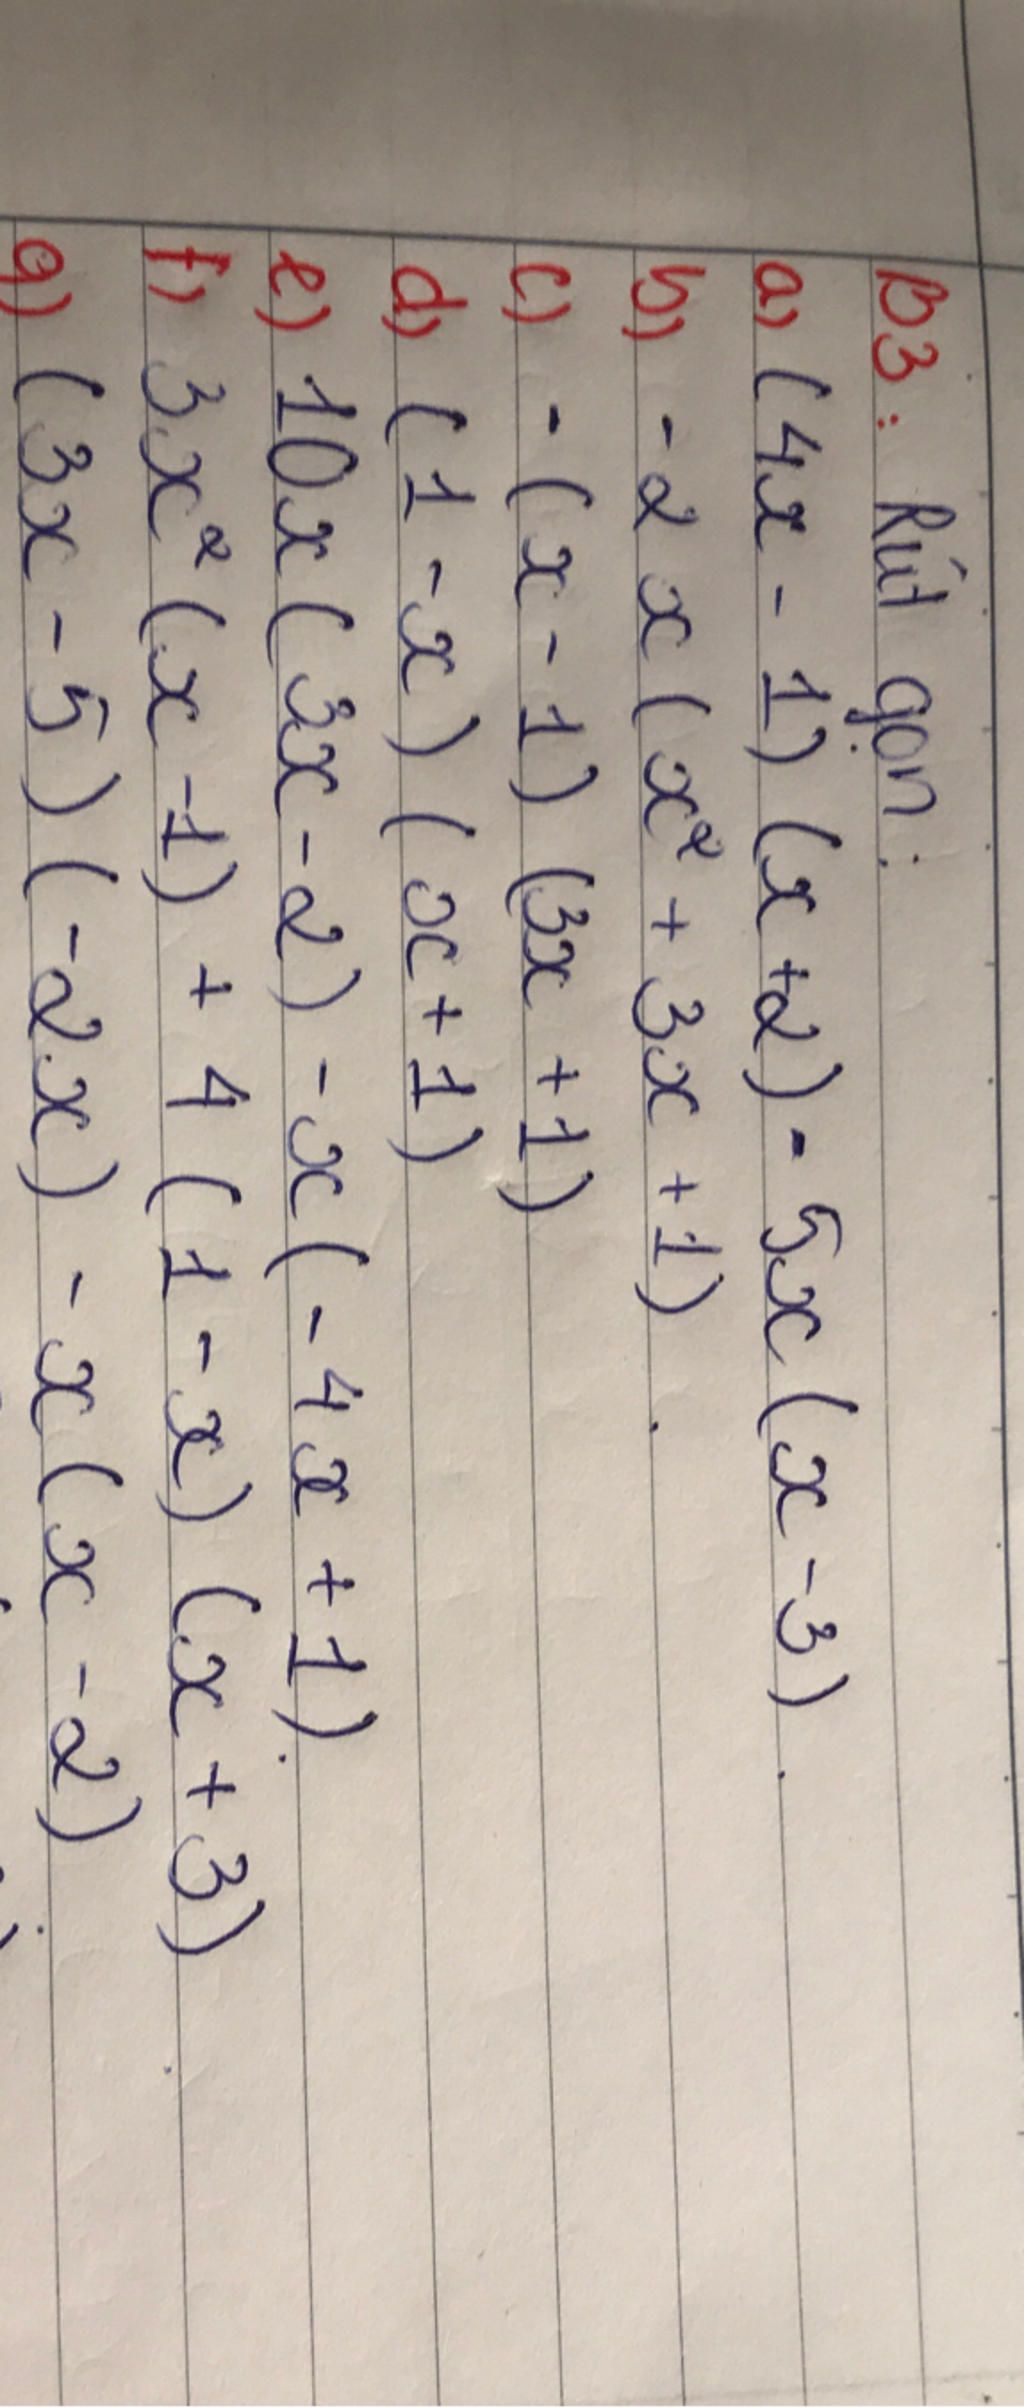 B3: Rút gọn:
a) (4x - 1) (x + 2) - 5x (x - 3).
b) - 2x (x² + 3x + 1).
c) - (x - 1) (3x + 1)
d) (1 - x) (x + 1)
e) 10x (3x - 2) - x (- 4x + 1).
f) 3x² (x - 1) + 4 (1 - x) (x + 3)
g) (3x - 5) (- 2x) - x (x - 2)